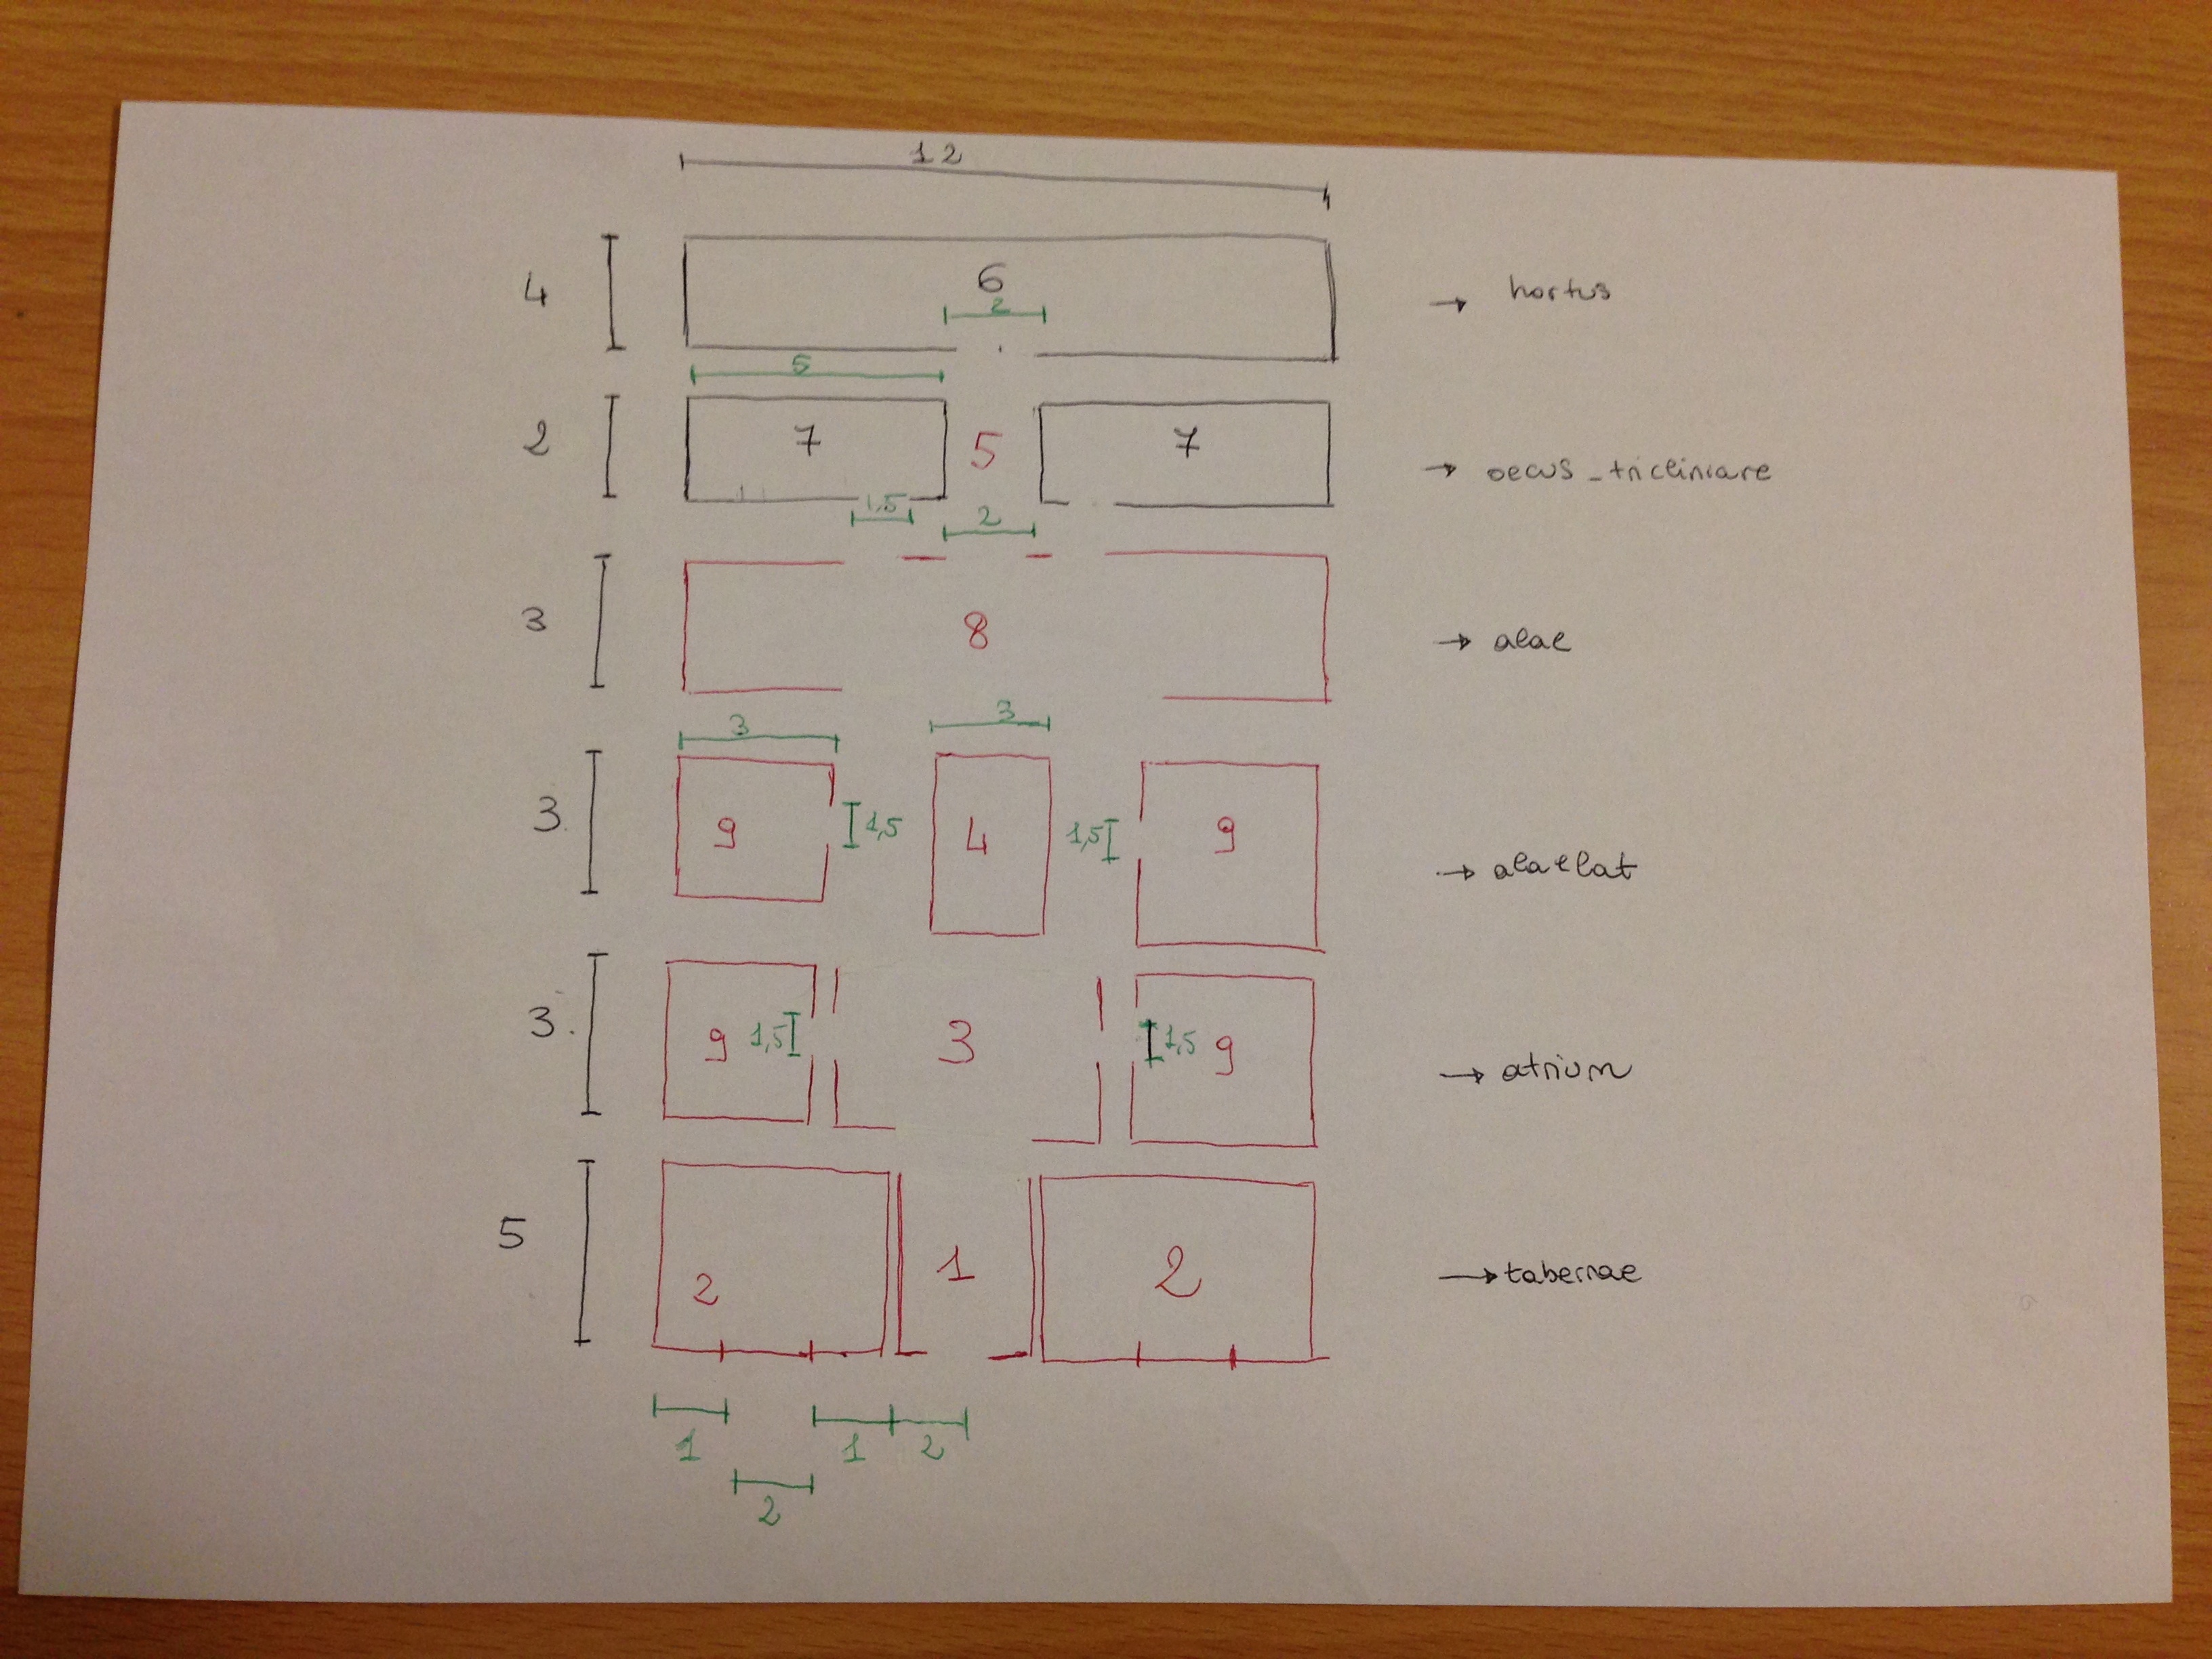 12
4 6 → hortus
2
5
2 7 5 7 → oecus_tricliniare
1,5 2
3 8 → alae
3 3
3. 9 1,5 4 1,5 9 → alaelat
3. 9 1,5 3 1,5 9 → atrium
5 2 1 2 → tabernae
1 1 2
2